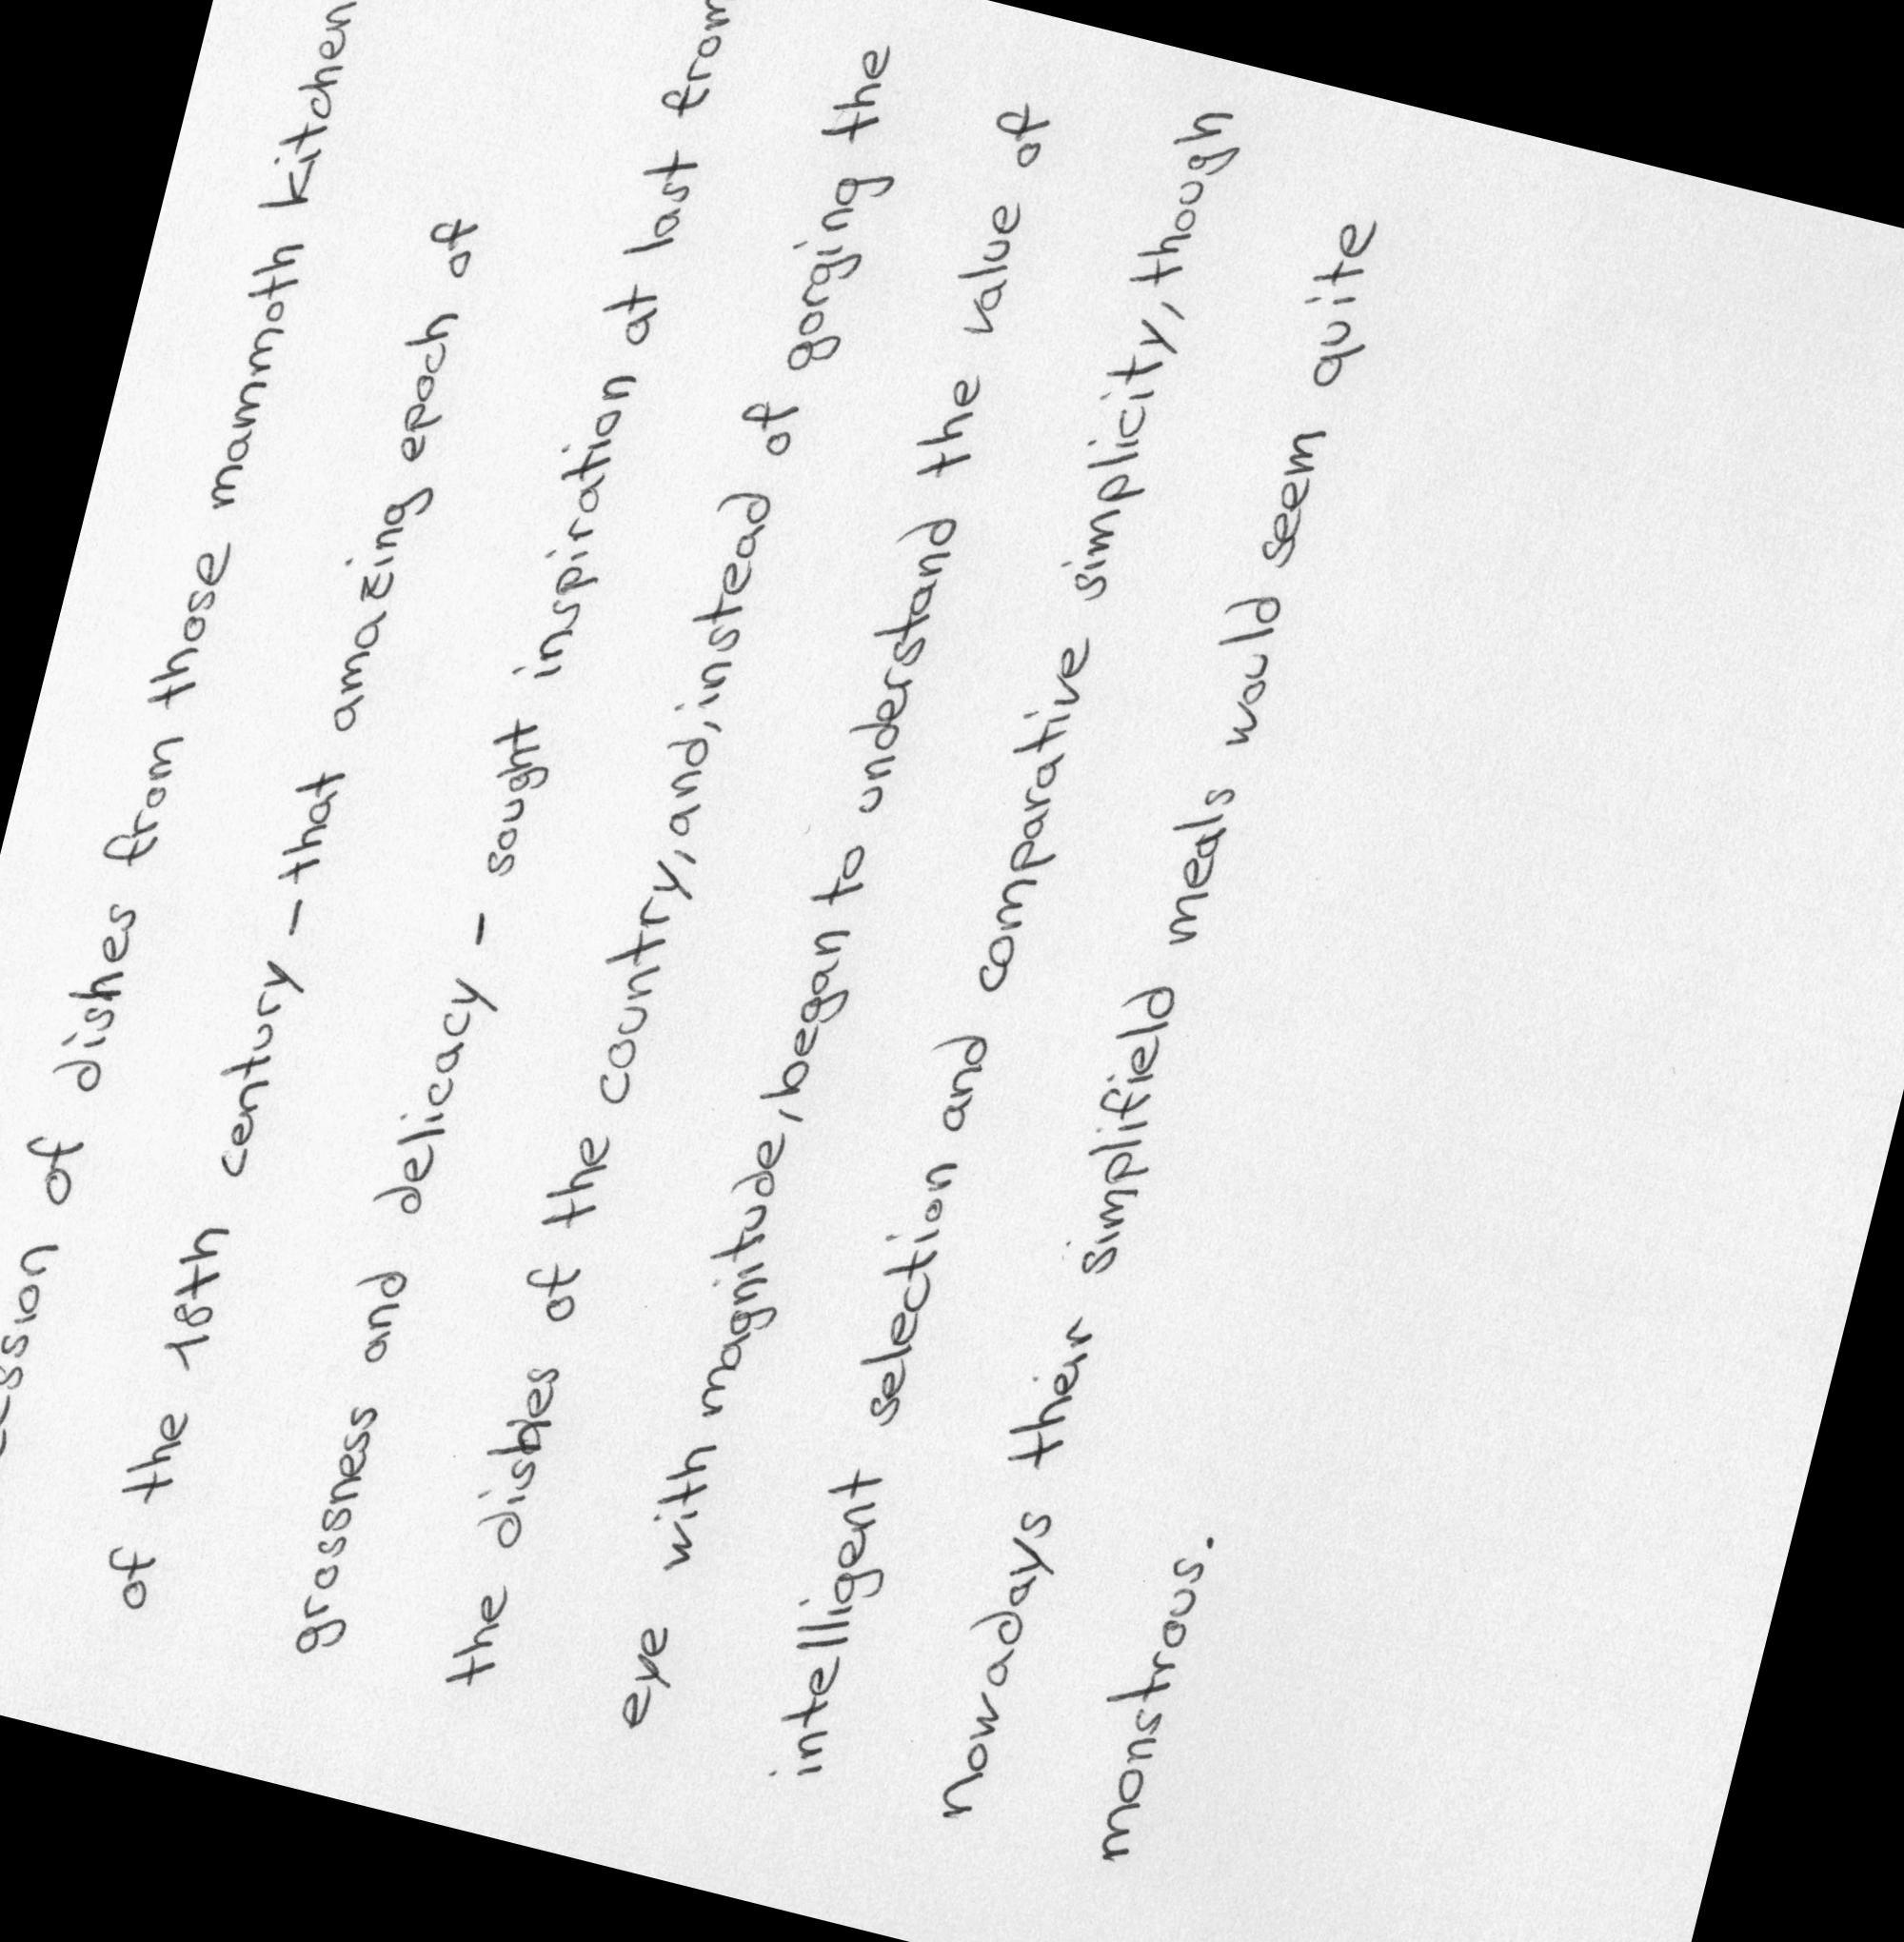 of dishes from those mammoth kitchen
of the 18th century - that amazing epoch of
grossness and delicacy - sought inspiration at last from
the dishes of the country, and, instead of gorging the
eye with magnitude, began to understand the value of
intelligent selection and comparative simplicity, though
nowadays their simplifield meals would seem quite
monstrous.